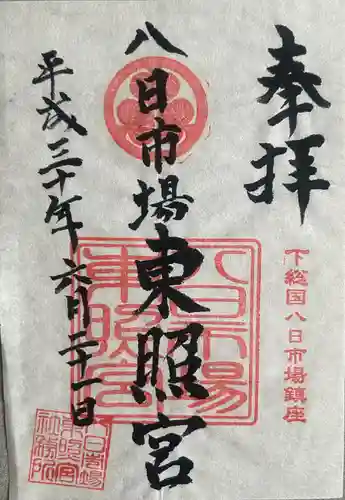 奉拝
下総国八日市場鎮座
八日市場東照宮
平成三十年六月二十一日
八日市場
東照宮
八日市場
東照宮
社務所